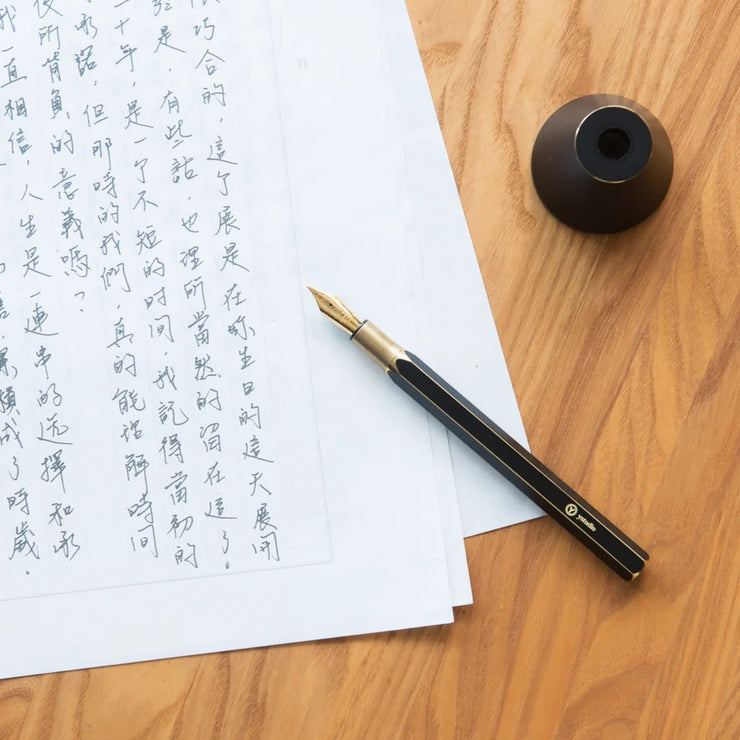 巧合的，這个展是在妳生日的這天展開
是，有些話，也理所當然的留在這了。
十年，是一个不短的時間，我記得當初的
承諾，但那時的我們，真的能理解時間
後所背負的意義嗎？
我一直相信，人生是一連串的选擇和承
累積成了時歲．
ystudio